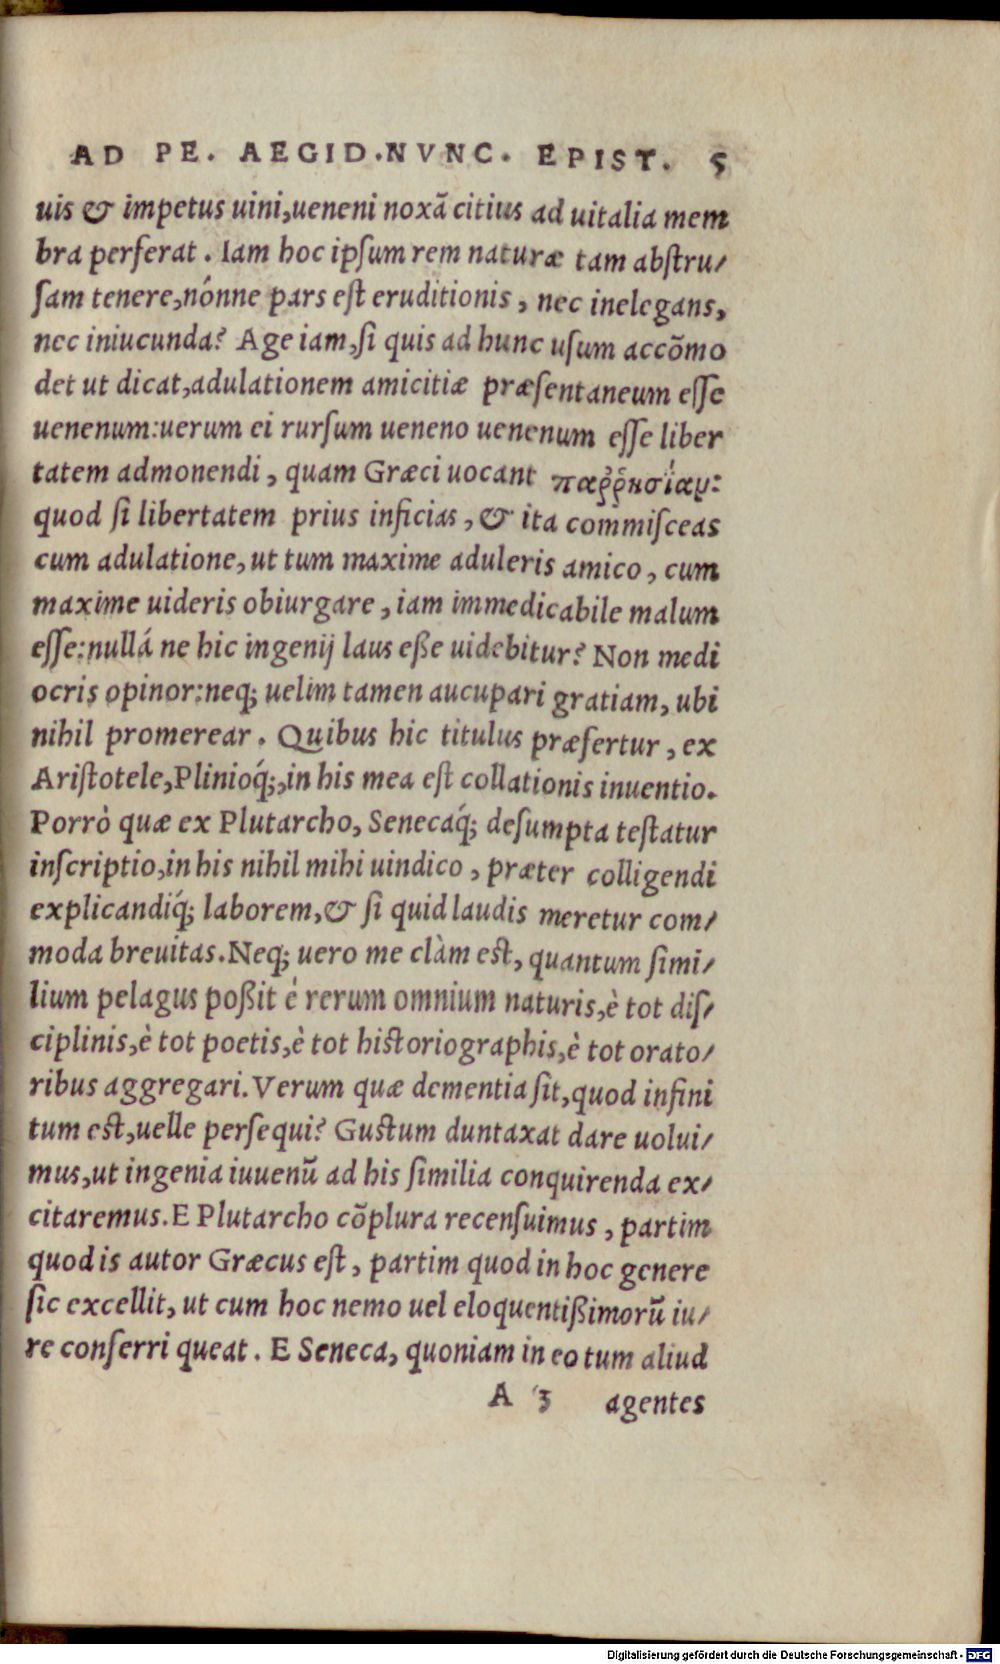 AD PE. AEGID. NVNC. EPIST. 5
uis & impetus uini, ueneni noxã citius ad uitalia mem
bra perferat. Iam hoc ipſum rem naturæ tam abſtru/
ſam tenere, nónne pars eſt eruditionis, nec inelegans,
nec iniucunda? Age iam, ſi quis ad hunc uſum accõmo
det ut dicat, adulationem amicitiæ præſentaneum eſſe
uenenum: uerum ei rurſum ueneno uenenum eſſe liber
tatem admonendi, quam Græci uocant παῤῥησίαν:
quod ſi libertatem prius inficias, & ita commiſceas
cum adulatione, ut tum maxime aduleris amico, cum
maxime uideris obiurgare, iam immedicabile malum
eſſe: nullá ne hic ingenij laus eße uidebitur? Non medi
ocris opinor: neq; uelim tamen aucupari gratiam, ubi
nihil promerear. Quibus hic titulus præfertur, ex
Ariſtotele, Plinioq́;, in his mea eſt collationis inuentio.
Porrò quæ ex Plutarcho, Senecaq́; deſumpta teſtatur
inſcriptio, in his nihil mihi uindico, præter colligendi
explicandiq́; laborem, & ſi quid laudis meretur com/
moda breuitas. Neq; uero me clàm est, quantum ſimi/
lium pelagus poßit é rerum omnium naturis, è tot diſ/
ciplinis, è tot poetis, è tot historiographis, è tot orato/
ribus aggregari. Verum quæ dementia ſit, quod infini
tum est, uelle persequi? Gustum duntaxat dare uolui/
mus, ut ingenia iuuenũ ad his ſimilia conquirenda ex/
citaremus. E Plutarcho cõplura recenſuimus, partim
quod is autor Græcus eſt, partim quod in hoc genere
ſic excellit, ut cum hoc nemo uel eloquentißimorũ iu/
re conferri queat. E Seneca, quoniam in eo tum aliud
A 3 agentes
Digitalisierung gefördert durch die Deutsche Forschungsgemeinschaft - DFG